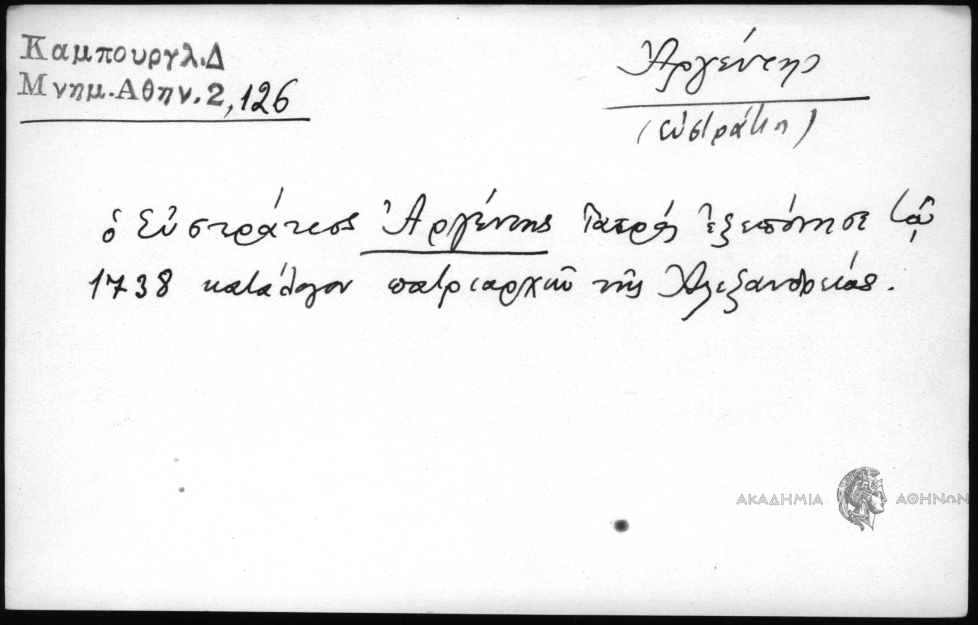 Καμπουργλ.Δ
Μνημ.Αθην.2,126
Ἀργέντης
(Εὐστράτιος)
ὁ Εὐστράτιος Ἀργέντης ἰατρός ἐξεπόνησε τῷ
1738 κατάλογον πατριαρχῶν τῆς Ἀλεξανδρείας.
ΑΚΑΔΗΜΙΑ ΑΘΗΝΩΝ